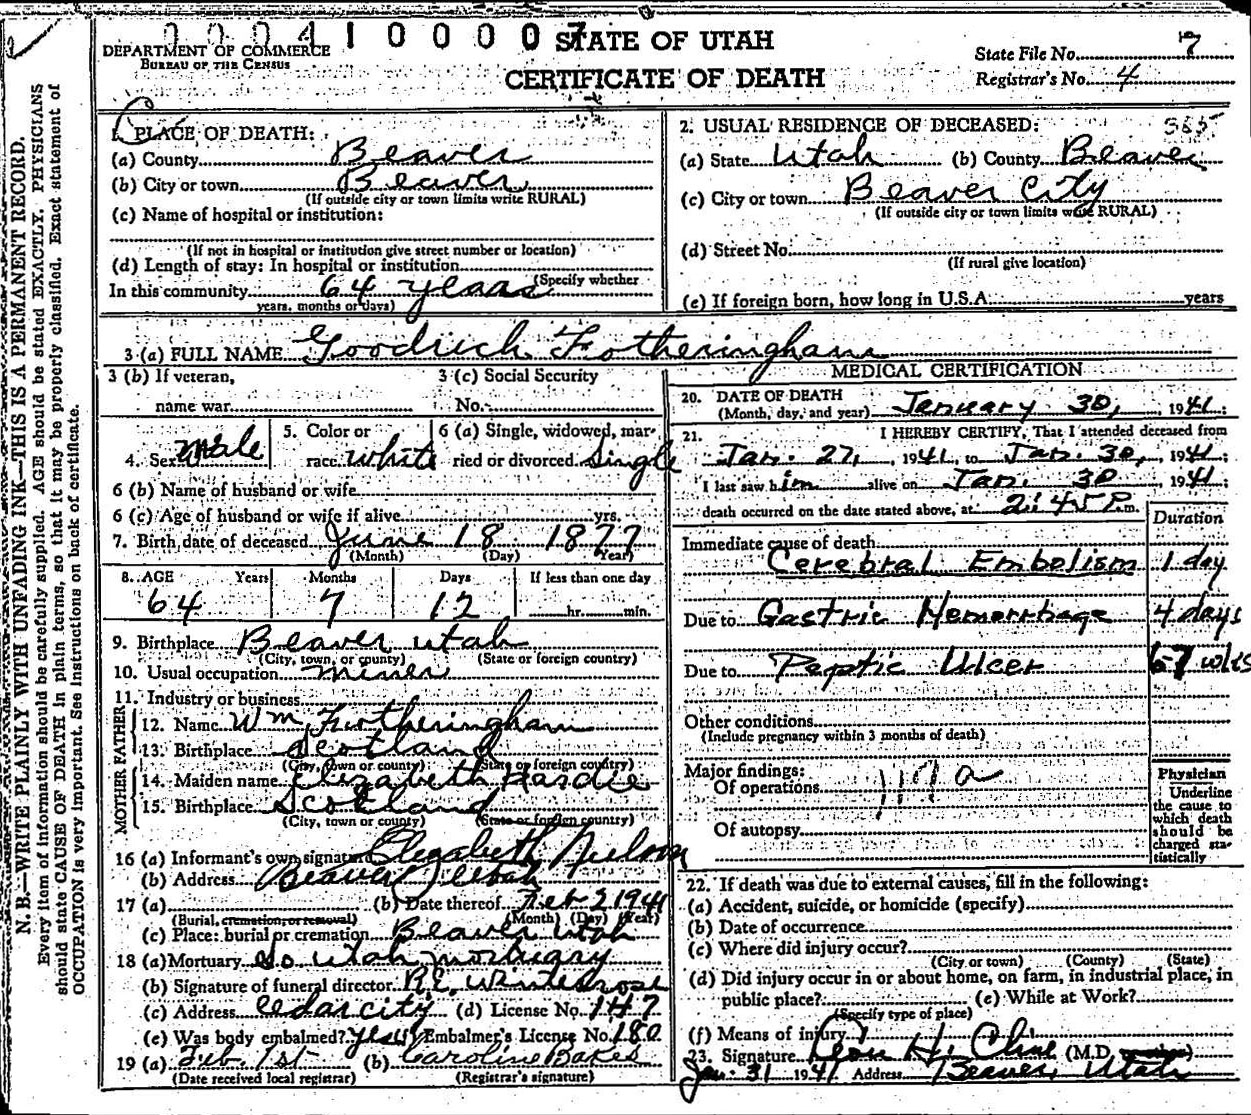 0 0 0 4 1 0 0 0 0 7 STATE OF UTAH
DEPARTMENT OF COMMERCE
BUREAU OF THE CENSUS
CERTIFICATE OF DEATH
State File No. 7
Registrar's No. 4
N. B.—WRITE PLAINLY WITH UNFADING INK—THIS IS A PERMANENT RECORD.
Every item of information should be carefully supplied. AGE should be stated EXACTLY. PHYSICIANS
should state CAUSE OF DEATH in plain terms, so that it may be properly classified. Exact statement of
OCCUPATION is very important. See instructions on back of certificate.
1. PLACE OF DEATH:
(a) County Beaver
(b) City or town Beaver
(If outside city or town limits write RURAL)
(c) Name of hospital or institution:
(If not in hospital or institution give street number or location)
(d) Length of stay: In hospital or institution
(Specify whether
In this community 64 years
years, months or days)
2. USUAL RESIDENCE OF DECEASED:
(a) State Utah (b) County Beaver
(c) City or town Beaver City
(If outside city or town limits write RURAL)
(d) Street No.
(If rural give location)
(e) If foreign born, how long in U.S.A. years
3 (a) FULL NAME Goodrich Fotheringham
3 (b) If veteran, 3 (c) Social Security
name war No.
4. Sex Male 5. Color or race white 6 (a) Single, widowed, married or divorced Single
6 (b) Name of husband or wife
6 (c) Age of husband or wife if alive yrs.
7. Birth date of deceased June 18 1877
(Month) (Day) Year)
8. AGE Years Months Days If less than one day
64 7 12 hr. min.
9. Birthplace Beaver Utah
(City, town, or county) (State or foreign country)
10. Usual occupation miner
11. Industry or business
FATHER
12. Name Wm. Fotheringham
13. Birthplace Scotland
(City, town or county) (State or foreign country)
MOTHER
14. Maiden name Elizabeth Hardie
15. Birthplace Scotland
(City, town or county) (State or foreign country)
16 (a) Informant's own signature Elizabeth
(b) Address Beaver, Utah
17 (a) (b) Date thereof Feb 2 1941
(Burial, cremation, or removal) (Month) (Day) (Year)
(c) Place: burial or cremation Beaver Utah
18 (a) Mortuary So Utah Mortuary
(b) Signature of funeral director R.E. Winterrose
(c) Address Cedar City (d) License No. 147
(e) Was body embalmed? Yes Embalmer's License No. 180
19 (a) Feb. 1st (b) Caroline Bakes
(Date received local registrar) (Registrar's signature)
MEDICAL CERTIFICATION
20. DATE OF DEATH
(Month, day, and year) January 30, 1941
21. I HEREBY CERTIFY, That I attended deceased from
Jan. 27, 1941, to Jan. 30, 1941;
I last saw him alive on Jan. 30 1941;
death occurred on the date stated above, at 2:45 P.m.
Duration
Immediate cause of death
Cerebral Embolism 1 day
Due to Gastric Hemorrhage 4 days
Due to Peptic Ulcer
Other conditions
(Include pregnancy within 3 months of death)
Major findings:
Of operations
Of autopsy
Physician
Underline
the cause to
which death
should be
charged sta-
tistically
22. If death was due to external causes, fill in the following:
(a) Accident, suicide, or homicide (specify)
(b) Date of occurrence
(c) Where did injury occur?
(City or town) (County) (State)
(d) Did injury occur in or about home, on farm, in industrial place, in
public place? (e) While at Work?
(Specify type of place)
(f) Means of injury
23. Signature Leon H. Cline (M.D.
Jan. 31 1941 Address Beaver, Utah